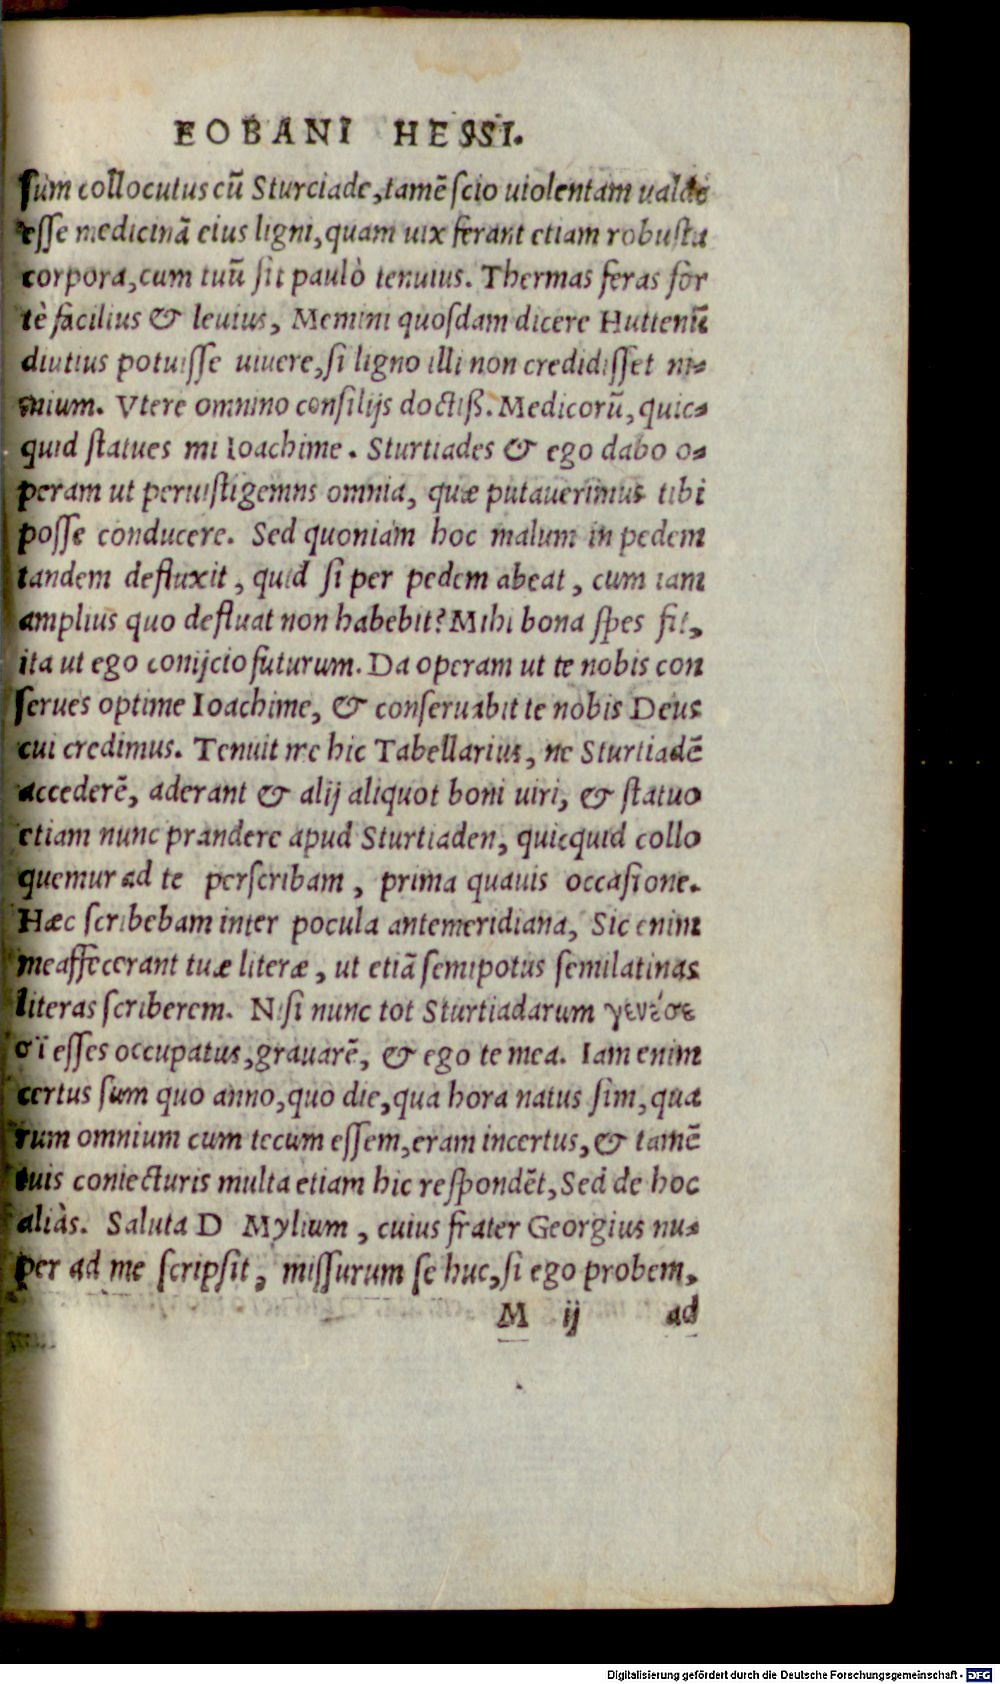 EOBANI HESSI.
ſum collocutus cũ Sturciade, tamẽ ſcio uiolentam ualde
eſſe medicinã eius ligni, quam uix ferant etiam robuſta
corpora, cum tuũ ſit paulò tenuius. Thermas feras for
tè facilius & leuius, Memini quoſdam dicere Huttenũ
diutius potuiſſe uiuere, ſi ligno illi non credidiſſet ni-
mium. Vtere omnino conſilijs doctiß. Medicorũ, quic-
quid ſtatues mi Ioachime. Sturtiades & ego dabo o-
peram ut peruiſtigemns omnia, quæ putauerimus tibi
poſſe conducere. Sed quoniam hoc malum in pedem
tandem defluxit, quid ſi per pedem abeat, cum iam
amplius quo defluat non habebit? Mihi bona ſpes ſit,
ita ut ego conijcio futurum. Da operam ut te nobis con
ſerues optime Ioachime, & conſeruabit te nobis Deus
cui credimus. Tenuit me hic Tabellarius, ne Sturtiadẽ
accederẽ, aderant & alij aliquot boni uiri, & ſtatuo
etiam nunc prandere apud Sturtiaden, quicquid collo
quemur ad te perſcribam, prima quauis occaſione.
Hæc ſcribebam inter pocula antemeridiana, Sic enim
me affecerant tuæ literæ, ut etiã ſemipotus ſemilatinas
literas ſcriberem. Niſi nunc tot Sturtiadarum γενέσε
σϊ eſſes occupatus, grauarẽ, & ego te mea. Iam enim
certus ſum quo anno, quo die, qua hora natus ſim, qua
rum omnium cum tecum eſſem, eram incertus, & tamẽ
tuis coniecturis multa etiam hic reſpondẽt, Sed de hoc
aliàs. Saluta D Mylium, cuius frater Georgius nu-
per ad me ſcripſit, miſſurum ſe huc, ſi ego probem,
M ij ad
Digitalisierung gefördert durch die Deutsche Forschungsgemeinschaft - DFG